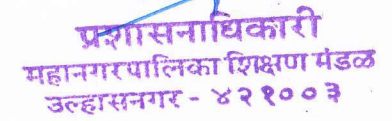 प्रशासनाधिकारी
महानगरपालिका शिक्षण मंडळ
उल्हासनगर - ४२१००३